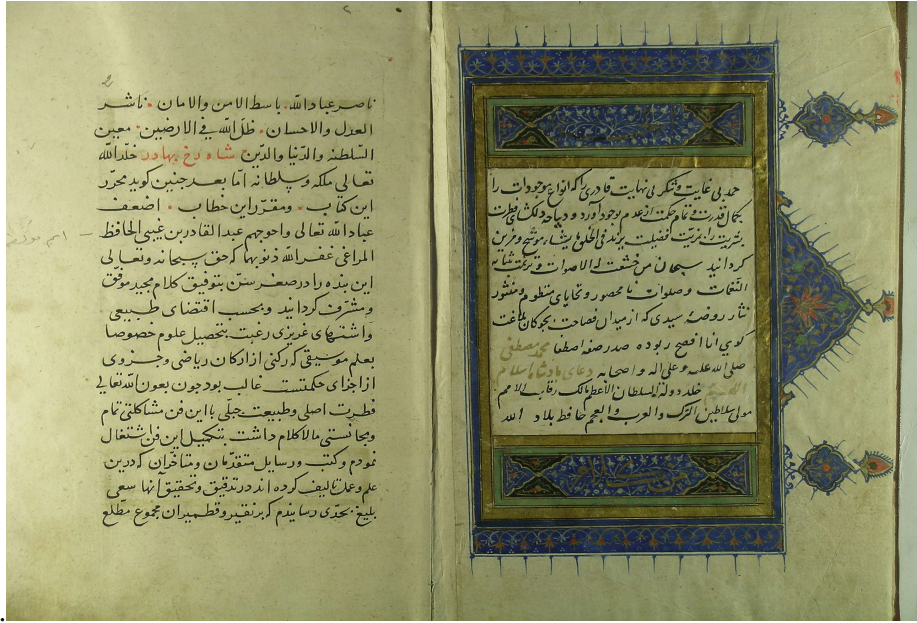 حمد بی غایت و شکر بی نهایت قادری را که انواع موجودات را
بکمال قدرت و تمام حکمت از عدم بوجود آورد و دیباجه دلکشای فطرت
بشریت را بمزیت فضیلت یزید فی الخلق ما یشاء موشح و مزین
کردانید سبحان من خشعت له الاصوات و
النغمات و صلوات نا محصور و تحایای منظوم و منثور
نثار روضهٔ سیدی که از میدان فصاحت بجوکان بلاغت
کوی انا افصح ربوده صدر صفه اصطفا محمد مصطفی
صلی الله علیه و علی اله و اصحابه دعای پادشاه اسلام
خلد دولته السلطان الاعظم مالک رقاب الامم
مولی سلاطین الترک والعرب والعجم حافظ بلاد الله
2
ناصر عباد الله باسط الامن والامان ناشر
العدل والاحسان ظل الله فی الارضین معین
السلطنه والدنیا والدین شاه رخ بهادر خلد الله
تعالی ملکه و سلطانه اما بعد جنین کوید محرر
این کتاب و مقرر این خطاب اضعف
عباد الله تعالی واحوجهم عبد القادر بن غیبی الحافظ
المراغی غفر الله ذنوبهما که حق سبحانه وتعالی
این بنده را در صغر سن بتوفیق کلام مجید موفق
و مشرف کردانید و بحسب اقتضای طبیعی
و اشتهای غریزی رغبت بتحصیل علوم خصوصا
بعلم موسیقی که رکنی از ارکان ریاضی و جزوی
از اجزای حکمتست غالب بود جون بعون الله تعالی
فطرت اصلی و طبیعت جبلی با این فن مشاکلتی تمام
و مجانستی مالاکلام داشت بتکمیل این فن اشتغال
نمودم و کتب و رسایل متقدمان و متاخران که درین
علم و عمل تالیف کرده اند در تدقیق و تحقیق آنها سعی
بلیغ بحدی رسانیدم که بر نقیر و قطمیر ان مجموع مطلع